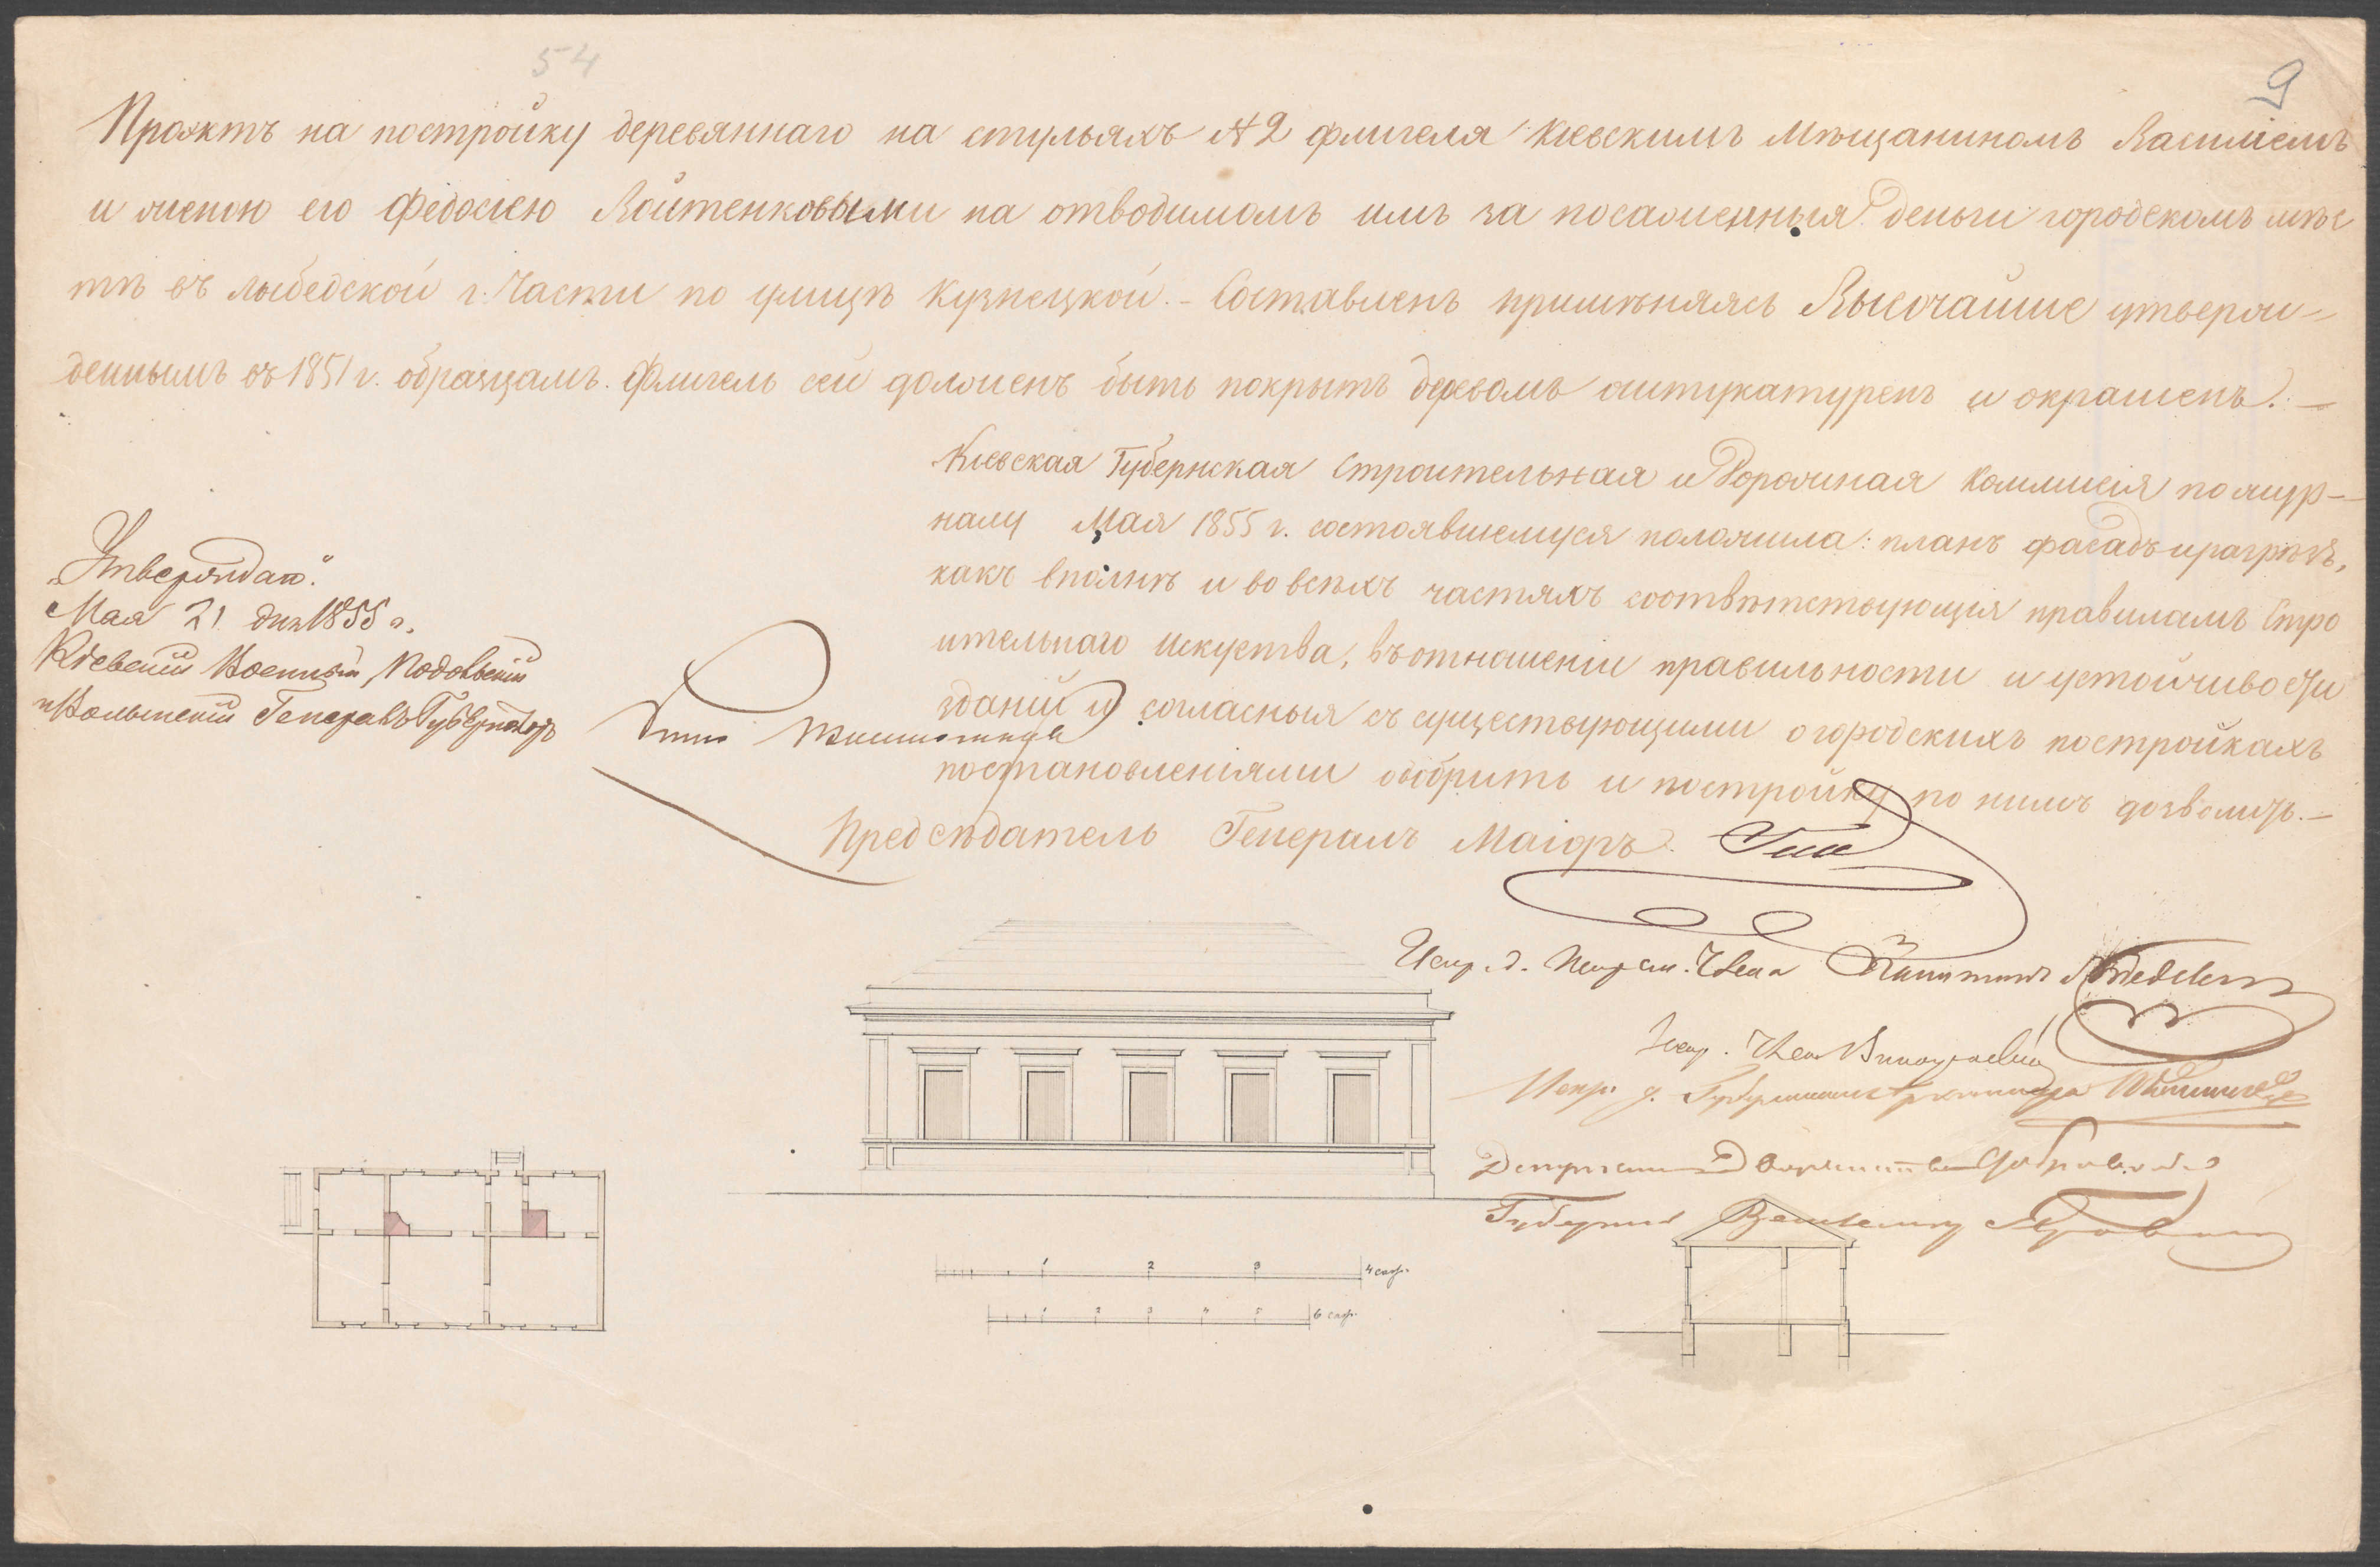 54
9
Проэктъ на постройку деревяннаго на стульяхъ №2 флигеля Кіевскимъ Мѣщаниномъ Василіемъ
и женою его Федосіею Войтенковыми на отводимомъ имъ за посаженныя деньги городскомъ мѣс
тѣ въ Лыбедской г: Части по улицѣ Кузнецкой. - Составленъ примѣняясь Высочайше утверж-
деннымъ въ 1851 г. образцамъ. Флигель сей долженъ быть покрытъ деревомъ оштукатуренъ и окрашенъ. -
Кіевская Губернская Строительная и Дорожная Коммисія по жур-
налу Мая 1855 г. состоявшемуся положила: планъ фасадъ и разрѣзъ,
какъ вполнѣ и во всѣхъ частяхъ соотвѣтствующія правиламъ Стро
ительнаго Искуства, въ отношеніи правильности и устойчивости
зданій и согласныя съ существующими о городскихъ постройкахъ
постановленіями одобрить и постройку по нимъ дозволить. -
Предсѣдатель Генералъ Маіоръ
„Утверждаю."
Мая 21 дня 1855 г.
Кіевскій Военный Подольскій
и Волынскій Генералъ Губернаторъ
Испр. д. Члена Капитанъ
Испр. д. Губернскаго Архитектора
Депутатъ Дворянства
1 2 3 4 саж.
1 2 3 4 5 6 саж.